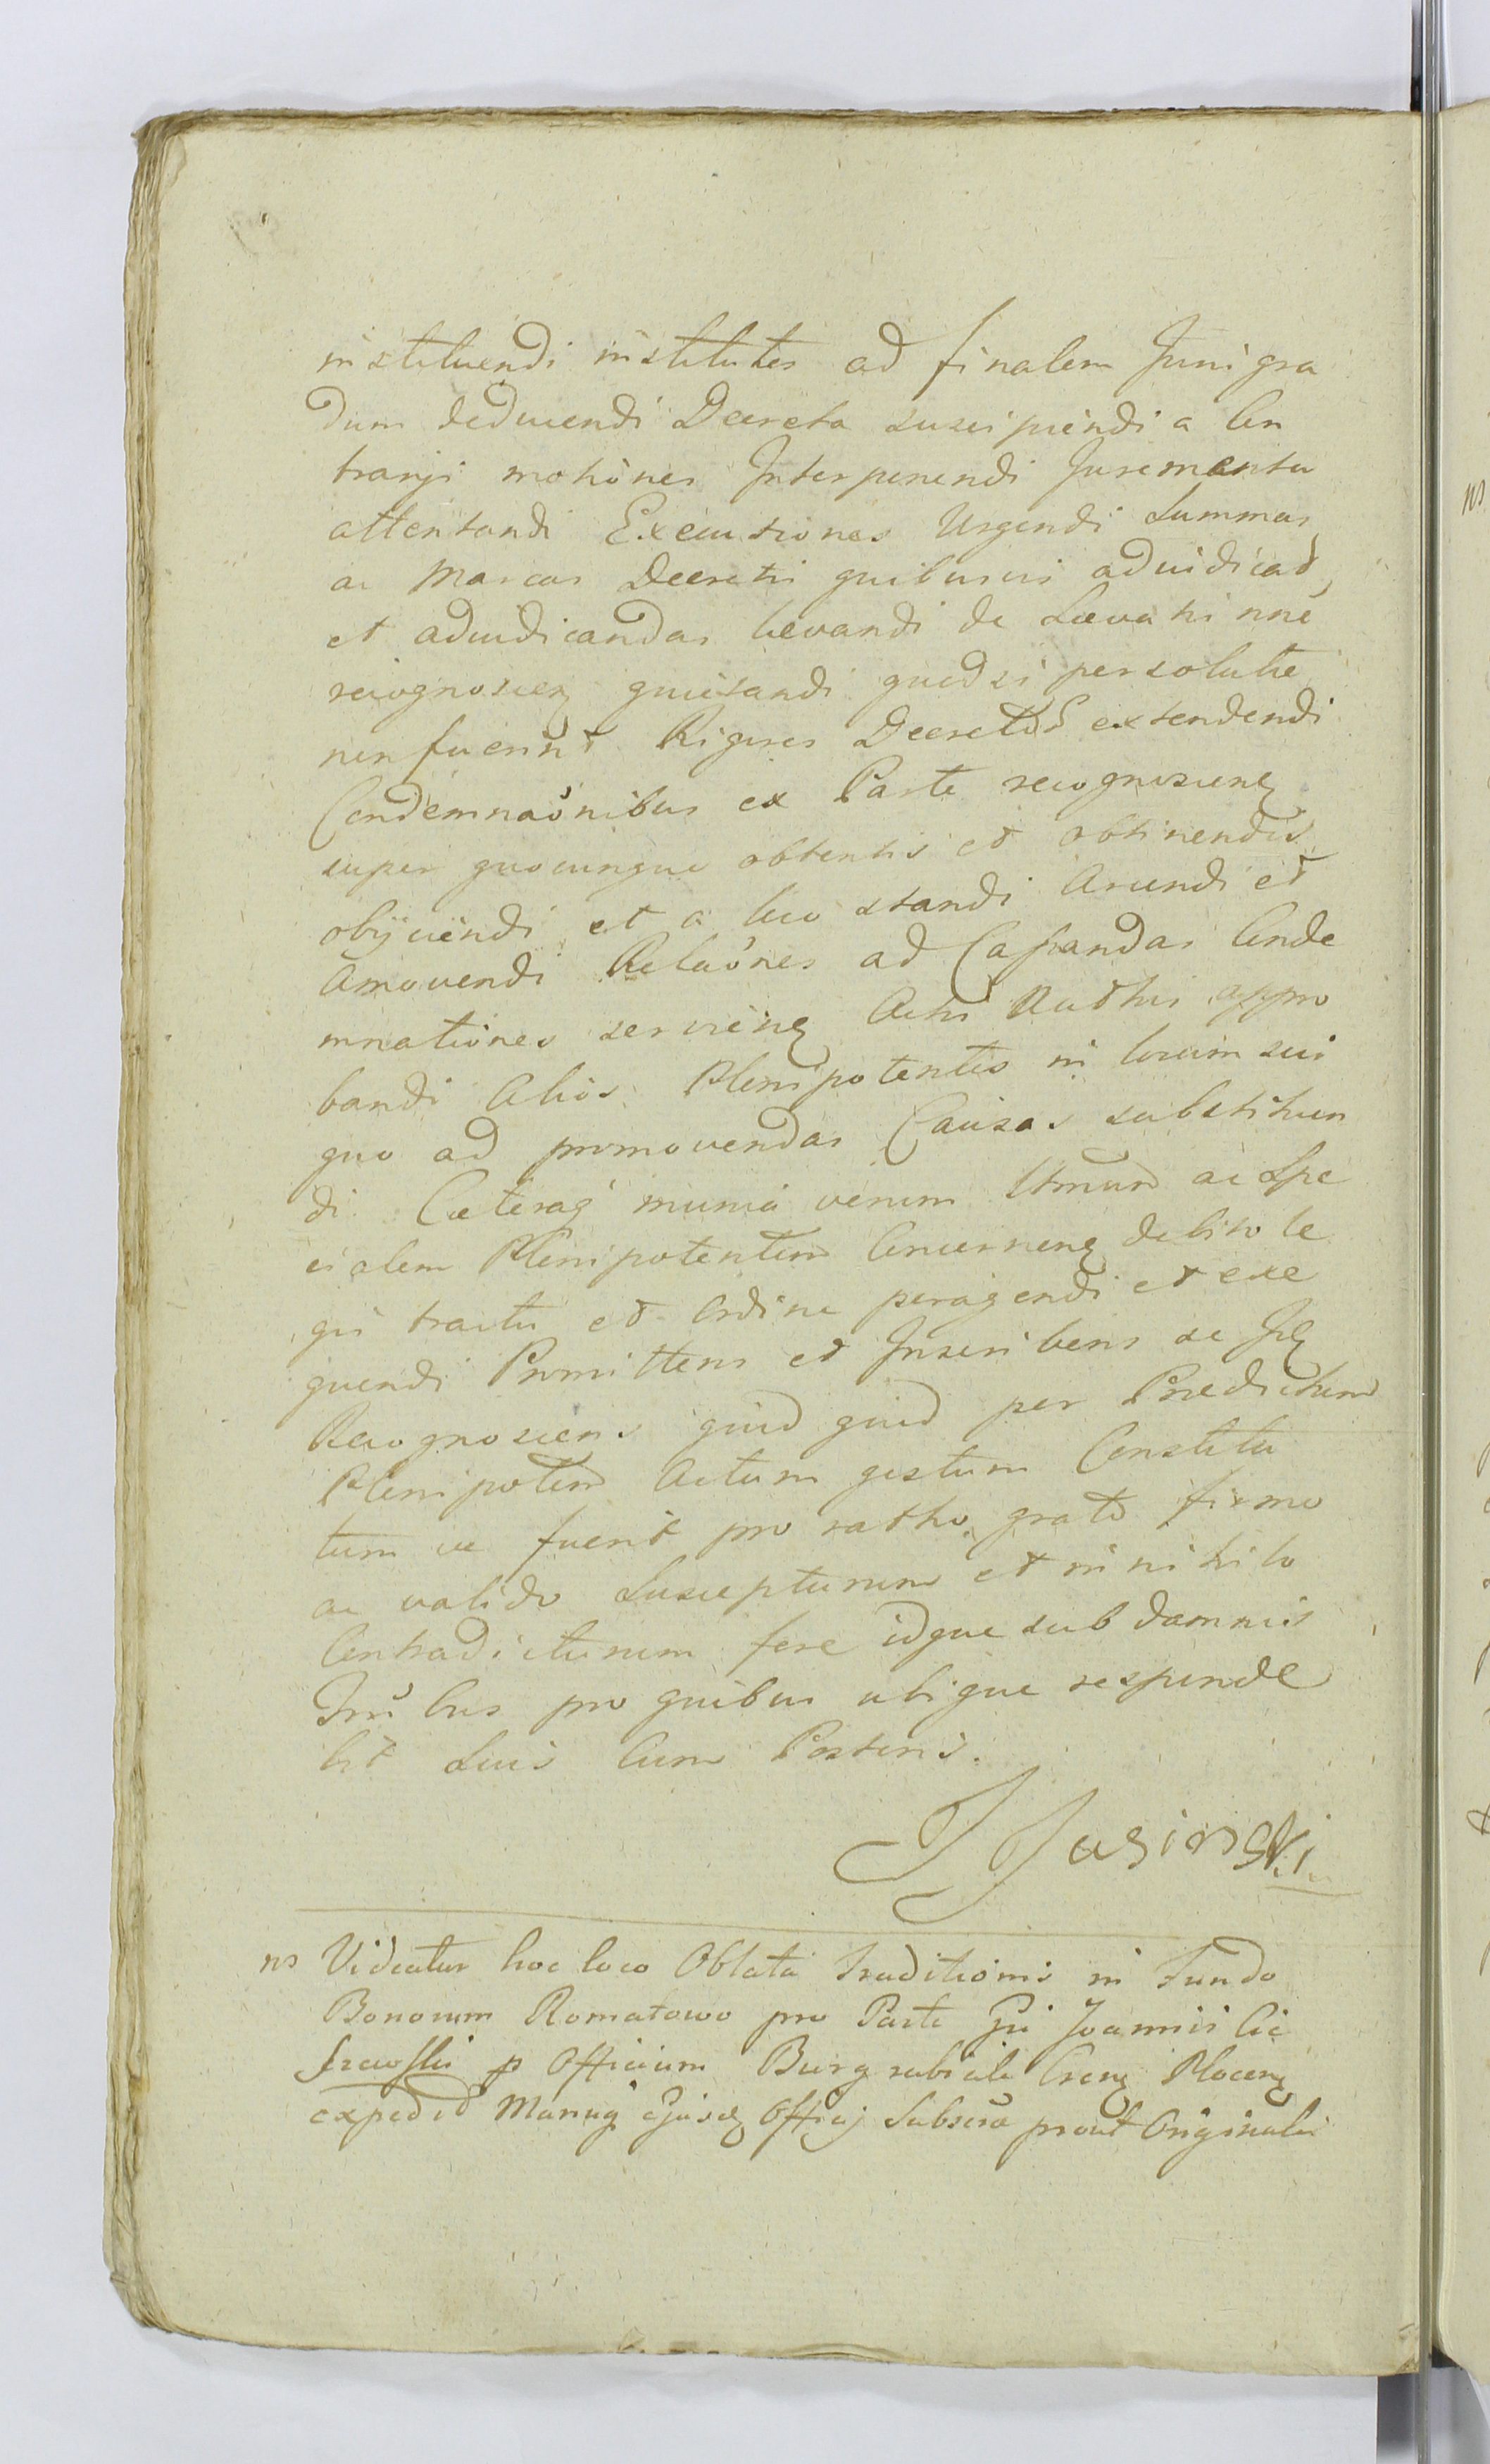 instituendi institutes ad finalem Juni gra
dum deducendi Decreta suscipiendi a Con
trarys motiones Interponendi Juramenta
attentandi Executiones Urgendi Summas
ac Marcas Decretis quibusvis adiudicat
et adiudicandas levandi de Levatis nne
recognoscen quietandi quod si persolutae
non fuerint Rigores Decretor extendendi
Condemnaonibus ex Parte recognoscen
super quocunque obtentis et obtinendis
obijciendi et a loco standi Arcendi et
Amovendi Relaones ad Cassandas Conde
mnationes servien Actis Ructhis appro
bandi Alios Plenipotentes in locum sui
quo ad promovendas Causas substituen
di Caeteraq munia verum Itmum ac Spe
cialem Plenipotentem Concernen debito le
gis tractu et Ordine peragendi et exe
quendi Promittens et Inscribens se Ips
Recognoscens quid quid per Praedictum
Plenipotem Actum gestum Constitu
tum ve fuerit pro ratho grato firmo
ac valido Suscepturum et in nihilo
Contradicturum fore idque sub damnis
Trribus pro quibus ubique responde
bit Suis Cum Posteris.
J Jasinski
ns Videatur hoc loco Oblata traditionis in Fundo
Bonorum Romatowo pro Parte Gsi Joannis Cie
szewski p Officium Burgrabiale Crense Plocen
expedit Manuq Ejusd Officij Subscra prout Originalis